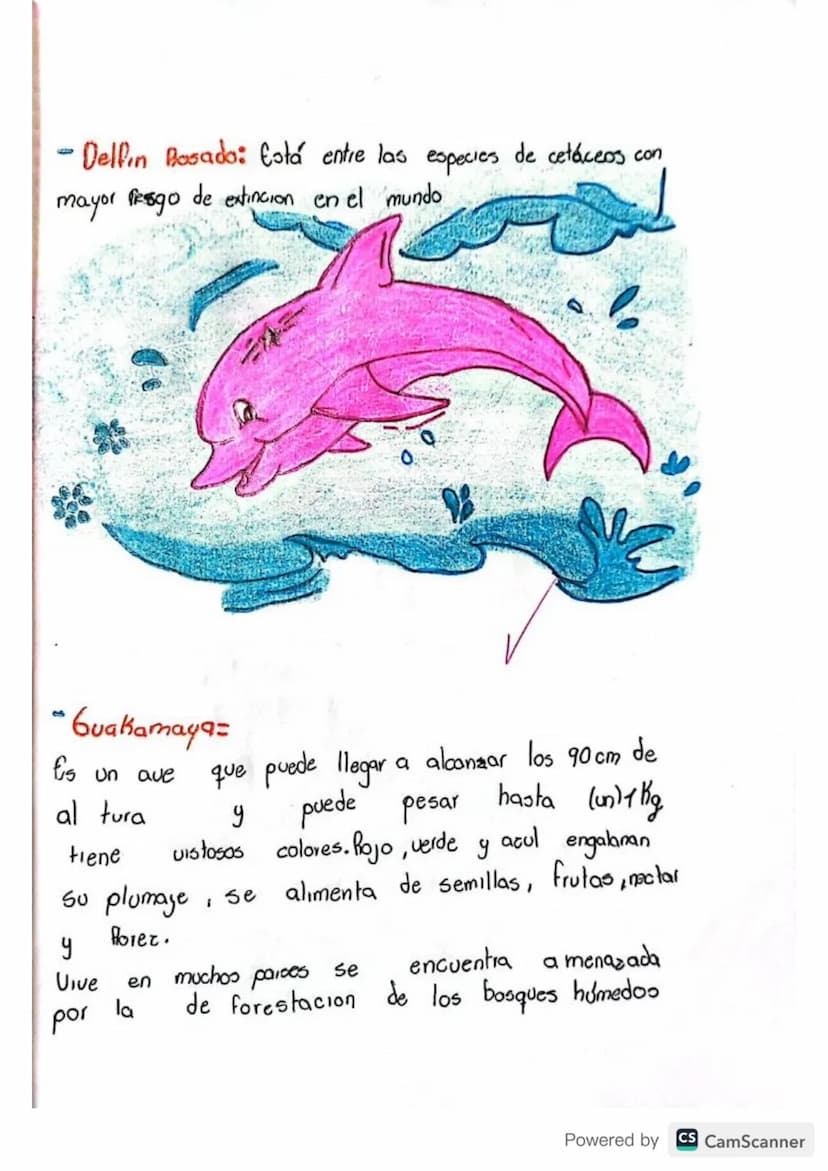 - Delfin Rosado: Está entre las especies de cetáceos con
mayor riesgo de extincion en el mundo
- Guakamaya=
Es un ave que puede llegar a alcanzar los 90 cm de
al tura y puede pesar hasta (un) 1 Kg
tiene vistosos colores. Rojo, verde y azul engalanan
su plumaje, se alimenta de semillas, frutas, nectar
y florez.
Vive en muchos paises se encuentra amenazada
por la de forestacion de los bosques húmedos
Powered by CS CamScanner